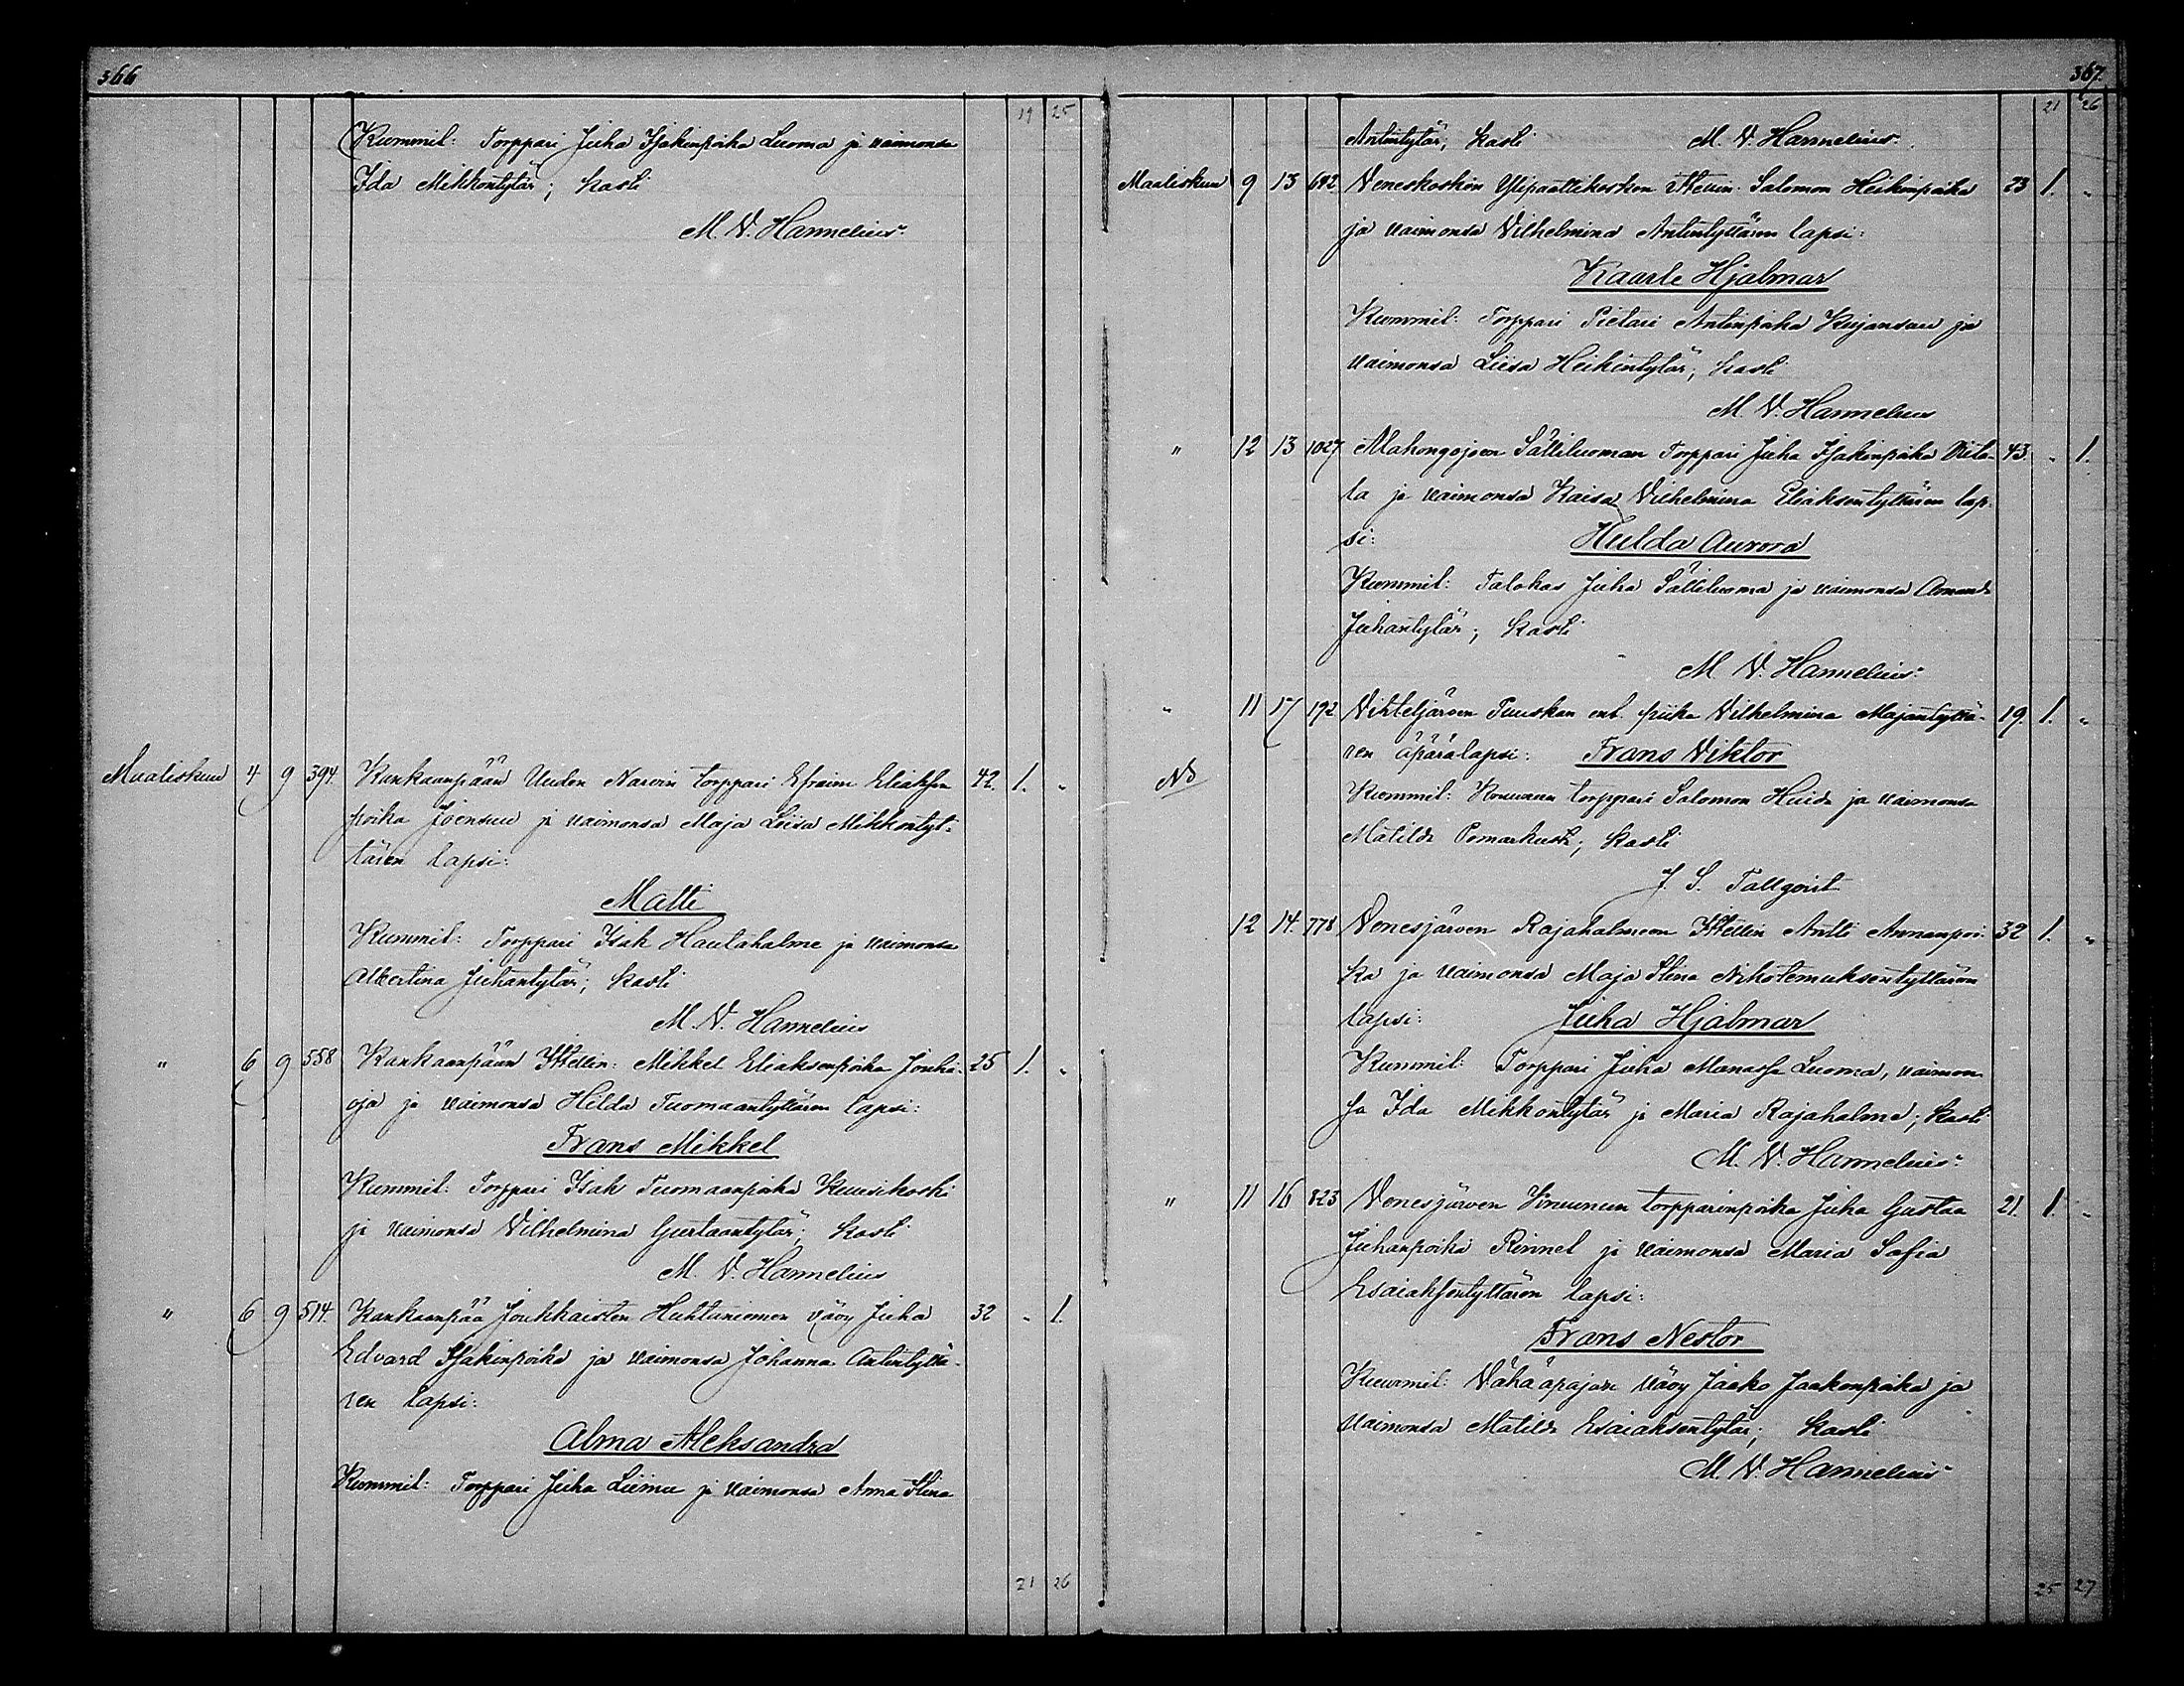 366
19 25
Kummit: Torppari Juha Isakinpoika Luoma ja vaimonsa
Ida Mikkontytär; kasti
M. V. Hannelius.
Maaliskuu 4 9 394. Kankaanpään Uuden Narvin torppari Efraim Eliaksen 42. 1. "
poika Joensuu ja vaimonsa Maja Liisa Mikkontyt-
tären lapsi:
Matti
Kummit: Torppari Isak Hautahalme ja vaimonsa
Albertina Juhantytär; kasti
M. V. Hannelius
" 6 9 558 Kankaanpään Itsellin: Mikkel Eliaksenpoika Jouhi- 25 1. "
oja ja vaimonsa Hilda Tuomaantyttären lapsi:
Frans Mikkel
Kummit: Torppari Isak Tuomaanpoika Kuusikoski
ja vaimonsa Vilhelmina Gustaantytär; kasti
M. V. Hannelius
" 6 9 514. Kankaanpää Joukkaisten Huhtaniemen vävy Juha 32 " 1.
Edvard Isakinpoika ja vaimonsa Johanna Antintyttä-
ren lapsi:
Alma Aleksandra
Kummit: Torppari Juha Liimu ja vaimonsa Anna Stina
21 26
367.
21 26
Antintytär; kasti M. V. Hannelius.
Maaliskuu 9 13 682 Veneskosken Ylipaattikosken Itsellin: Salomon Heikinpoika 23 1. "
ja vaimonsa Vilhelmina Antintyttären lapsi:
Kaarle Hjalmar
Kummit: Torppari Pietari Antinpoika Kujansuu ja
vaimonsa Liisa Heikintytär; kasti
M. V. Hannelius
" 12 13 1027 Alahongojoen Sälliluoman Torppari Juha Isakinpoika 43. " 1.
la ja vaimonsa Kaisa Vilhelmina Eliaksentyttären lap-
si: Hulda Aurora
Kummit: Talokas Juha Sälliluoma ja vaimonsa Amanda
Juhantytär; kasti
M. V. Hannelius.
" 11 17 192 Vihteljärven Tuuskan ent. piika Vilhelmina Majantyttä- 19. 1. "
ren äpärälapsi: Frans Viktor
Kummit: Kruunun torppari Salomon Huida ja vaimonsa
Matilda Pomarkusta; kasti
J. S. Tallqvist
12 14. 778 Venesjärven Rajahalmeen Itsellin Antti Annanpoi- 32 1. "
ka ja vaimonsa Maja Stina Nikotemuksentyttären
lapsi: Juha Hjalmar
Kummit: Torppari Juha Manasse Luoma, vaimon-
sa Ida Mikkontytär ja Maria Rajahalme; kasti
M. V. Hannelius.
" 11 16 823 Venesjärven Kruunun torpparinpoika Juha Gustaa 21. 1. "
Juhanpoika Rinnet ja vaimonsa Maria Sofia
Esaiaksentyttären lapsi:
Frans Nestor
Kummit: Vähäapajan vävy Jaako Jaakonpoika ja
vaimonsa Matilda Esaiaksentytär; kasti
M. V. Hannelius
25 27